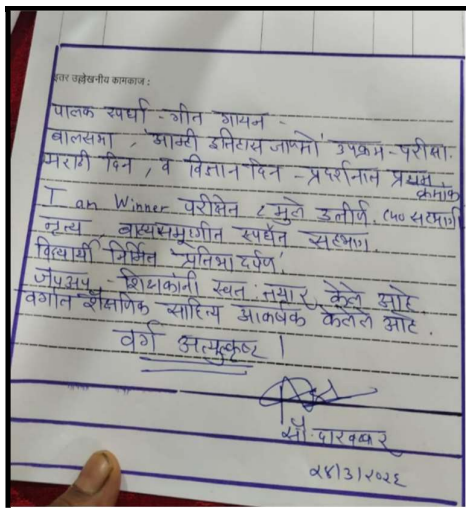 इतर उल्लेखनीय कामकाज :
पालक स्पर्धा - गीत गायन -
बालसभा, 'आम्ही इतिहास जाणतो' उपक्रम - परीक्षा.
मराठी दिन, व विज्ञान दिन - प्रदर्शनात प्रथम
क्रमांक
I am Winner परीक्षेत ८ मुले उत्तीर्ण. (५० सहभागी
नृत्य, स्पर्धेत सहभाग.
विद्यार्थी निर्मित 'प्रतिभा दर्पण'.
शिक्षकांनी स्वतः तयार केले आहे.
वर्गात शैक्षणिक साहित्य आकर्षक केलेले आहे.
वर्ग अत्युत्कृष्ट !
सौ. दारवटकर
२४/३/२०२६